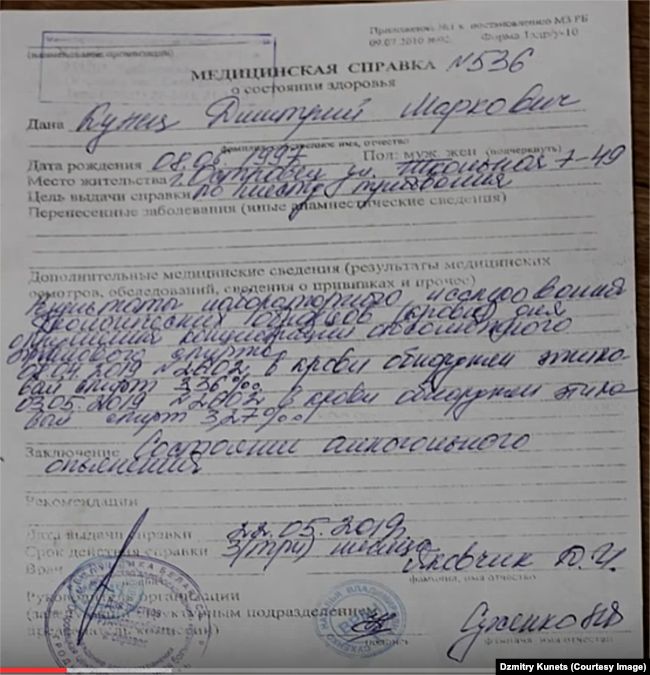 Приложение №1 к постановлению МЗ РБ
09.07.2010 №92. Форма 1здр/у-10
(наименование организации)
МЕДИЦИНСКАЯ СПРАВКА №536
о состоянии здоровья
Дана Кунец Дмитрий Маркович
фамилия, собственное имя, отчество
Дата рождения 08.06.1997 Пол: муж. жен (подчеркнуть)
Место жительства г. Островец ул. Школьная 7-49
Цель выдачи справки по месту требования
Перенесенные заболевания (иные анамнестические сведения)
Дополнительные медицинские сведения (результаты медицинских
осмотров, обследований, сведения о прививках и прочее)
Результаты лабораторного исследования
биологических образцов (крови) для
определения концентрации абсолютного
этилового спирта
02.04.2019 №2602 в крови обнаружен этило
вый спирт 3,36‰
03.05.2019 в крови обнаружен этило
вый спирт 3,27‰
Заключение Состоянии алкогольного
опьянения
Рекомендации
Дата выдачи справки 22.05.2019
Срок действия справки 3(три) месяца
Врач
фамилия, имя отчество
Руководитель организации
(заведующий структурным подразделением,
председатель комиссии)
подпись
фамилия, имя отчество
Dzmitry Kunets (Courtesy Image)